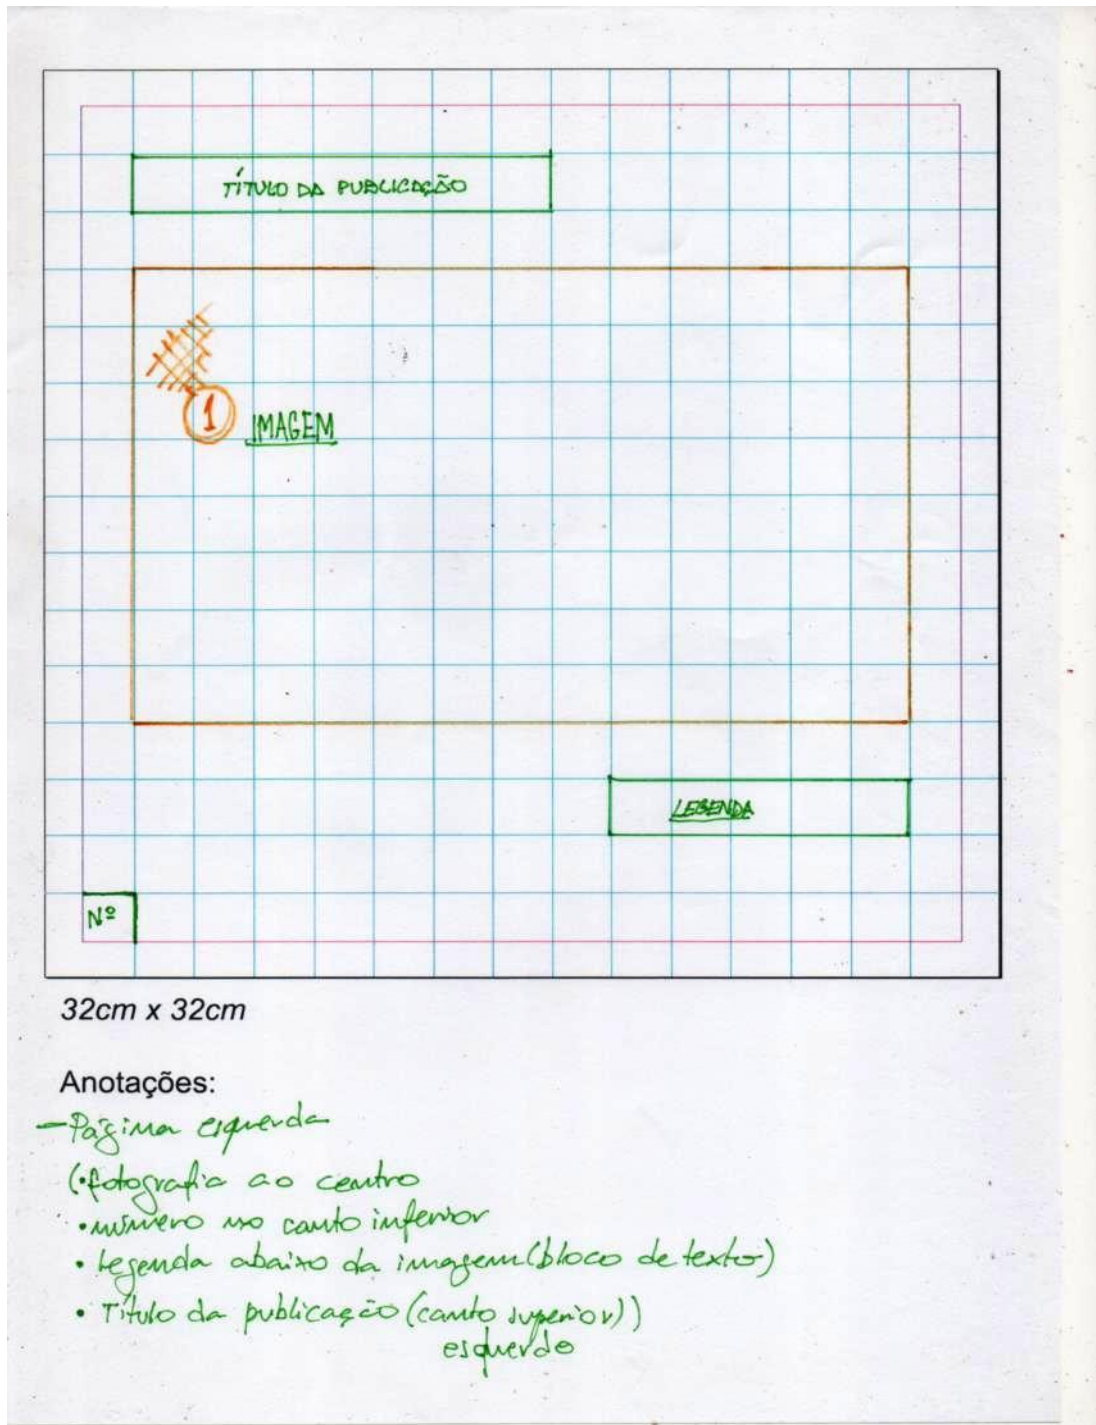 TÍTULO DA PUBLICAÇÃO
1 IMAGEM
LEGENDA
Nº
32cm x 32cm
Anotações:
- Página esquerda
(• fotografia ao centro
• número no canto inferior
• Legenda abaixo da imagem (bloco de texto)
• Título da publicação (canto superior))
esquerdo